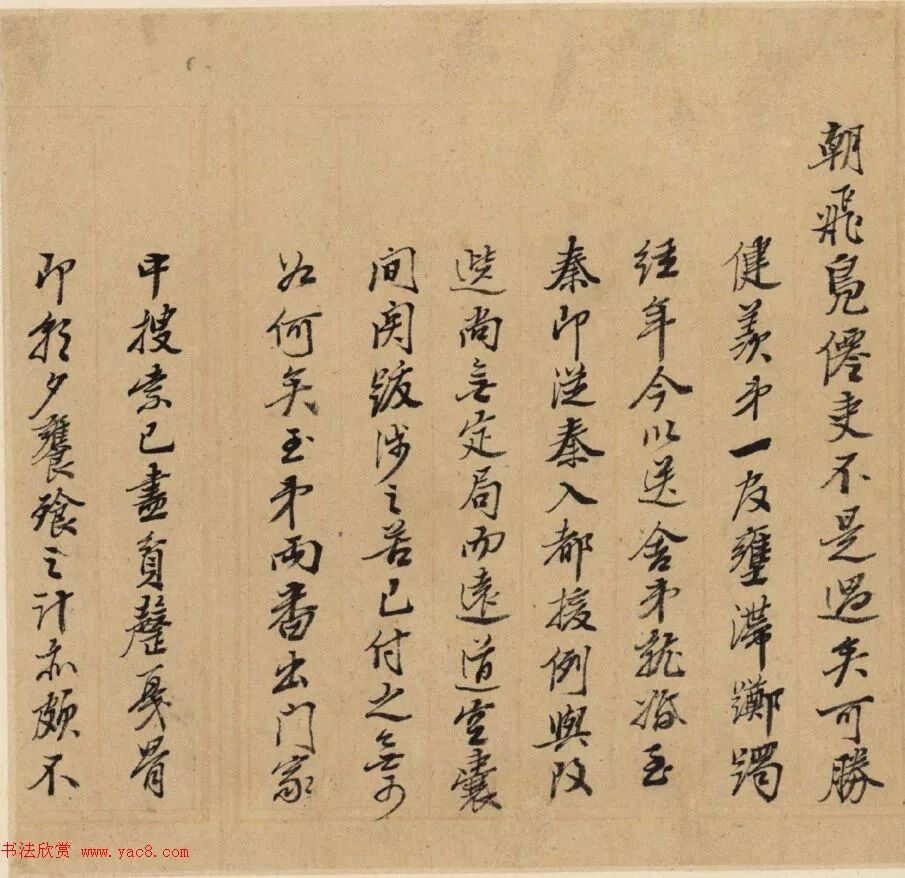 朝飛鳧僊吏不是過矣可勝
健羨弟一官壅滯躑躅
經年今以送舍弟就婚至
秦即從秦入都援例與改
選尚無定局而遠道空囊
間関跋涉之苦已付之無可
如何矣至弟兩番出門家
中搜索已盡貧罄戛骨
即朝夕饔飧之計亦頗不
书法欣赏 www.yac8.com